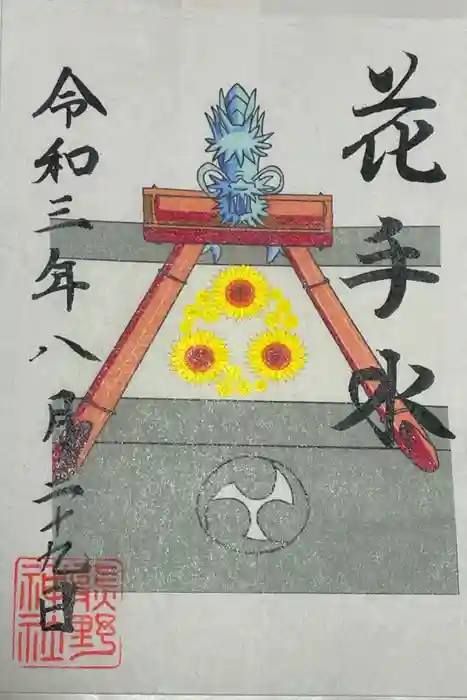 花手水
令和三年八月二十九日
野
神社